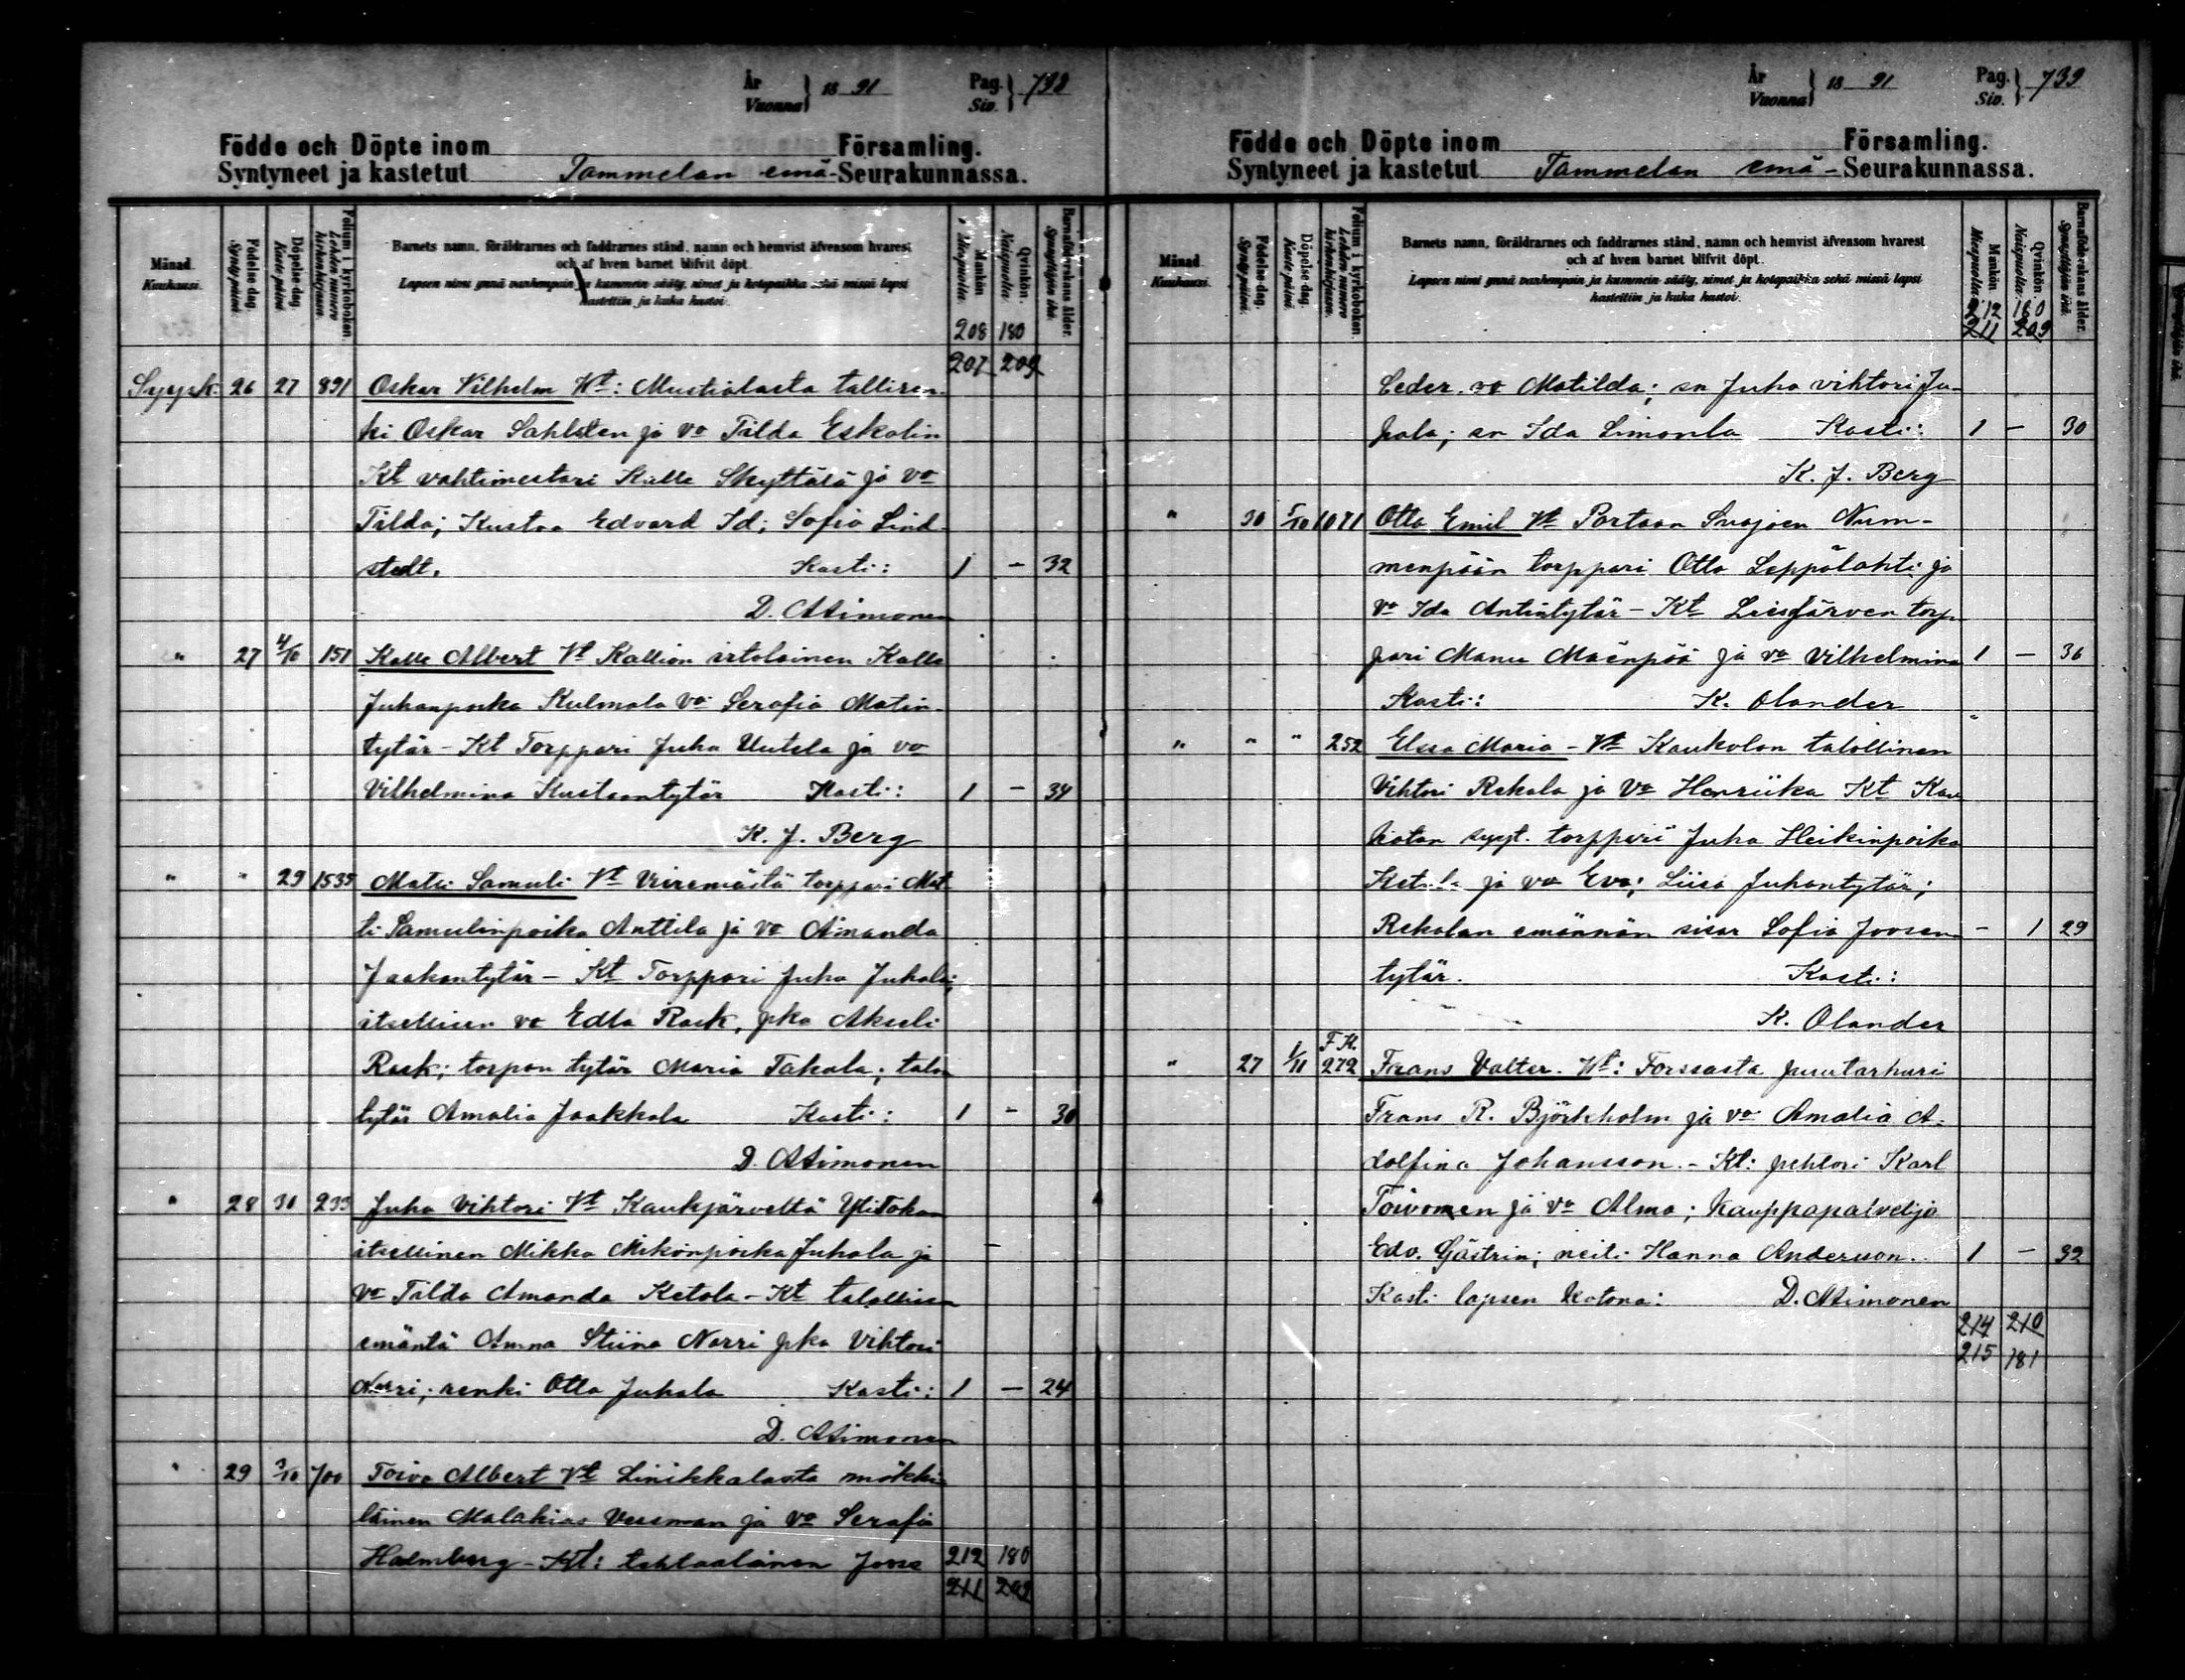 År
Vuonna } 18 91
Pag.
Siv. } 738
Födde och Döpte inom Församling.
Syntyneet ja kastetut Tammelan emä-Seurakunnassa.
Månad. Kuukausi.
Födelse-dag. Syntypäivä.
Döpelse-dag. Kaste-päivä.
Folium i kyrkoboken. Lehden numero kirkonkirjassa.
Barnets namn, föräldrarnes och faddrarnes stånd, namn och hemvist äfvensom hvarest
och af hvem barnet blifvit döpt.
Lapsen nimi ynnä vanhempain ja kummein sääty, nimet ja kotopaikka sekä missä lapsi
kastettiin ja kuka kastoi.
Mankön Miespuolia.
Qvinkön. Naispuolia.
Barnaföderskans ålder. Synnyttäjän ikä.
208 180
207 209
Syysk. 26 27 891 Oskar Vilhelm Vt: Mustialasta talliren-
ki Oskar Sahlsten ja vo Tilda Eskolin
Kt vahtimestari Kalle Skyttälä ja vo
Tilda; Kustaa Edvard Id; Sofia Lind-
stedt. Kasti: 1 - 32
D. Aimonen
" 27 4/10 151 Kalle Albert Vt Kallion irtolainen Kalle
Juhanpoika Kulmala vo Serafia Matin-
tytär - Kt Torppari Juha Uutela ja vo
Vilhelmina Kustaantytär Kasti: 1 - 34
K. J. Berg
" " 29 1535 Matti Samuli Vt torppari Mat-
ti Samulinpoika Anttila ja vo Amanda
Jaakontytär - Kt Torppari Juha Juhala;
itsellisen vo Edla Rask, pka Akseli
Rask; torpan tytär Maria Takala; talon
tytär Amalia Jaakkola Kasti: 1 - 30
D. Aimonen
" 28 30 233 Juha Vihtori Vt Kaukjärveltä
itsellinen Mikko Mikonpoika Juhala ja
vo Tilda Amanda Ketola - Kt talollisen
emäntä Anna Stiina Norri pka Vihtori
Norri; renki Otto Juhala Kasti: 1 - 24
D. Aimonen
" 29 3/10 700 Toivo Albert Vt Linikkalasta mökki-
läinen Malakias Vessman ja vo Serafia
Holmberg - Kt: tehtaalainen Joose
212 180
211 209
År
Vuonna } 18 91
Pag.
Siv. } 739
Födde och Döpte inom Församling.
Syntyneet ja kastetut Tammelan emä-Seurakunnassa.
Månad. Kuukausi.
Födelse-dag. Syntypäivä.
Döpelse-dag. Kaste-päivä.
Folium i kyrkoboken. Lehden numero kirkonkirjassa.
Barnets namn, föräldrarnes och faddrarnes stånd, namn och hemvist äfvensom hvarest
och af hvem barnet blifvit döpt.
Lapsen nimi ynnä vanhempain ja kummein sääty, nimet ja kotopaikka sekä missä lapsi
kastettiin ja kuka kastoi.
Mankön Miespuolia.
Qvinkön Naispuolia.
Barnaföderskans ålder. Synnyttäjän ikä.
212 180
211 209
Ceder. vo Matilda; Juha Vihtori Ju-
hala; Ida Simonla Kasti: 1 - 30
K. J. Berg
" 30 5/10 1071 Otto Emil Vt Portaan Suojoen Num-
menpään torppari Otto Leppälahti ja
vo Ida Antintytär - Kt Liesjärven torp-
pari Manu Mäenpää ja vo Vilhelmina 1 - 36
Kasti: K. Olander
" " " 252 Elssa Maria - Vt Kaukolan talollinen
Vihtori Rekola ja vo Henriika Kt Kau-
kolan torppari Juha Heikinpoika
Ketola ja vo Eva; Liisa Juhantytär;
Rekolan emännän sisar Sofia Joosen- - 1 29
tytär. Kasti:
K. Olander
F.K.
" 27 1/11 272 Frans Valter. Vt: Forssasta puutarhuri
Frans R. Björkholm ja vo Amalia A-
dolfina Johansson. - Kt: pehtori Karl
Toivonen ja vo Alma; kauppapalvelija
Edv. Gästrin; neiti Hanna Andersson. 1 - 32
Kasti lapsen kotona: D. Aimonen
214 210
215 181